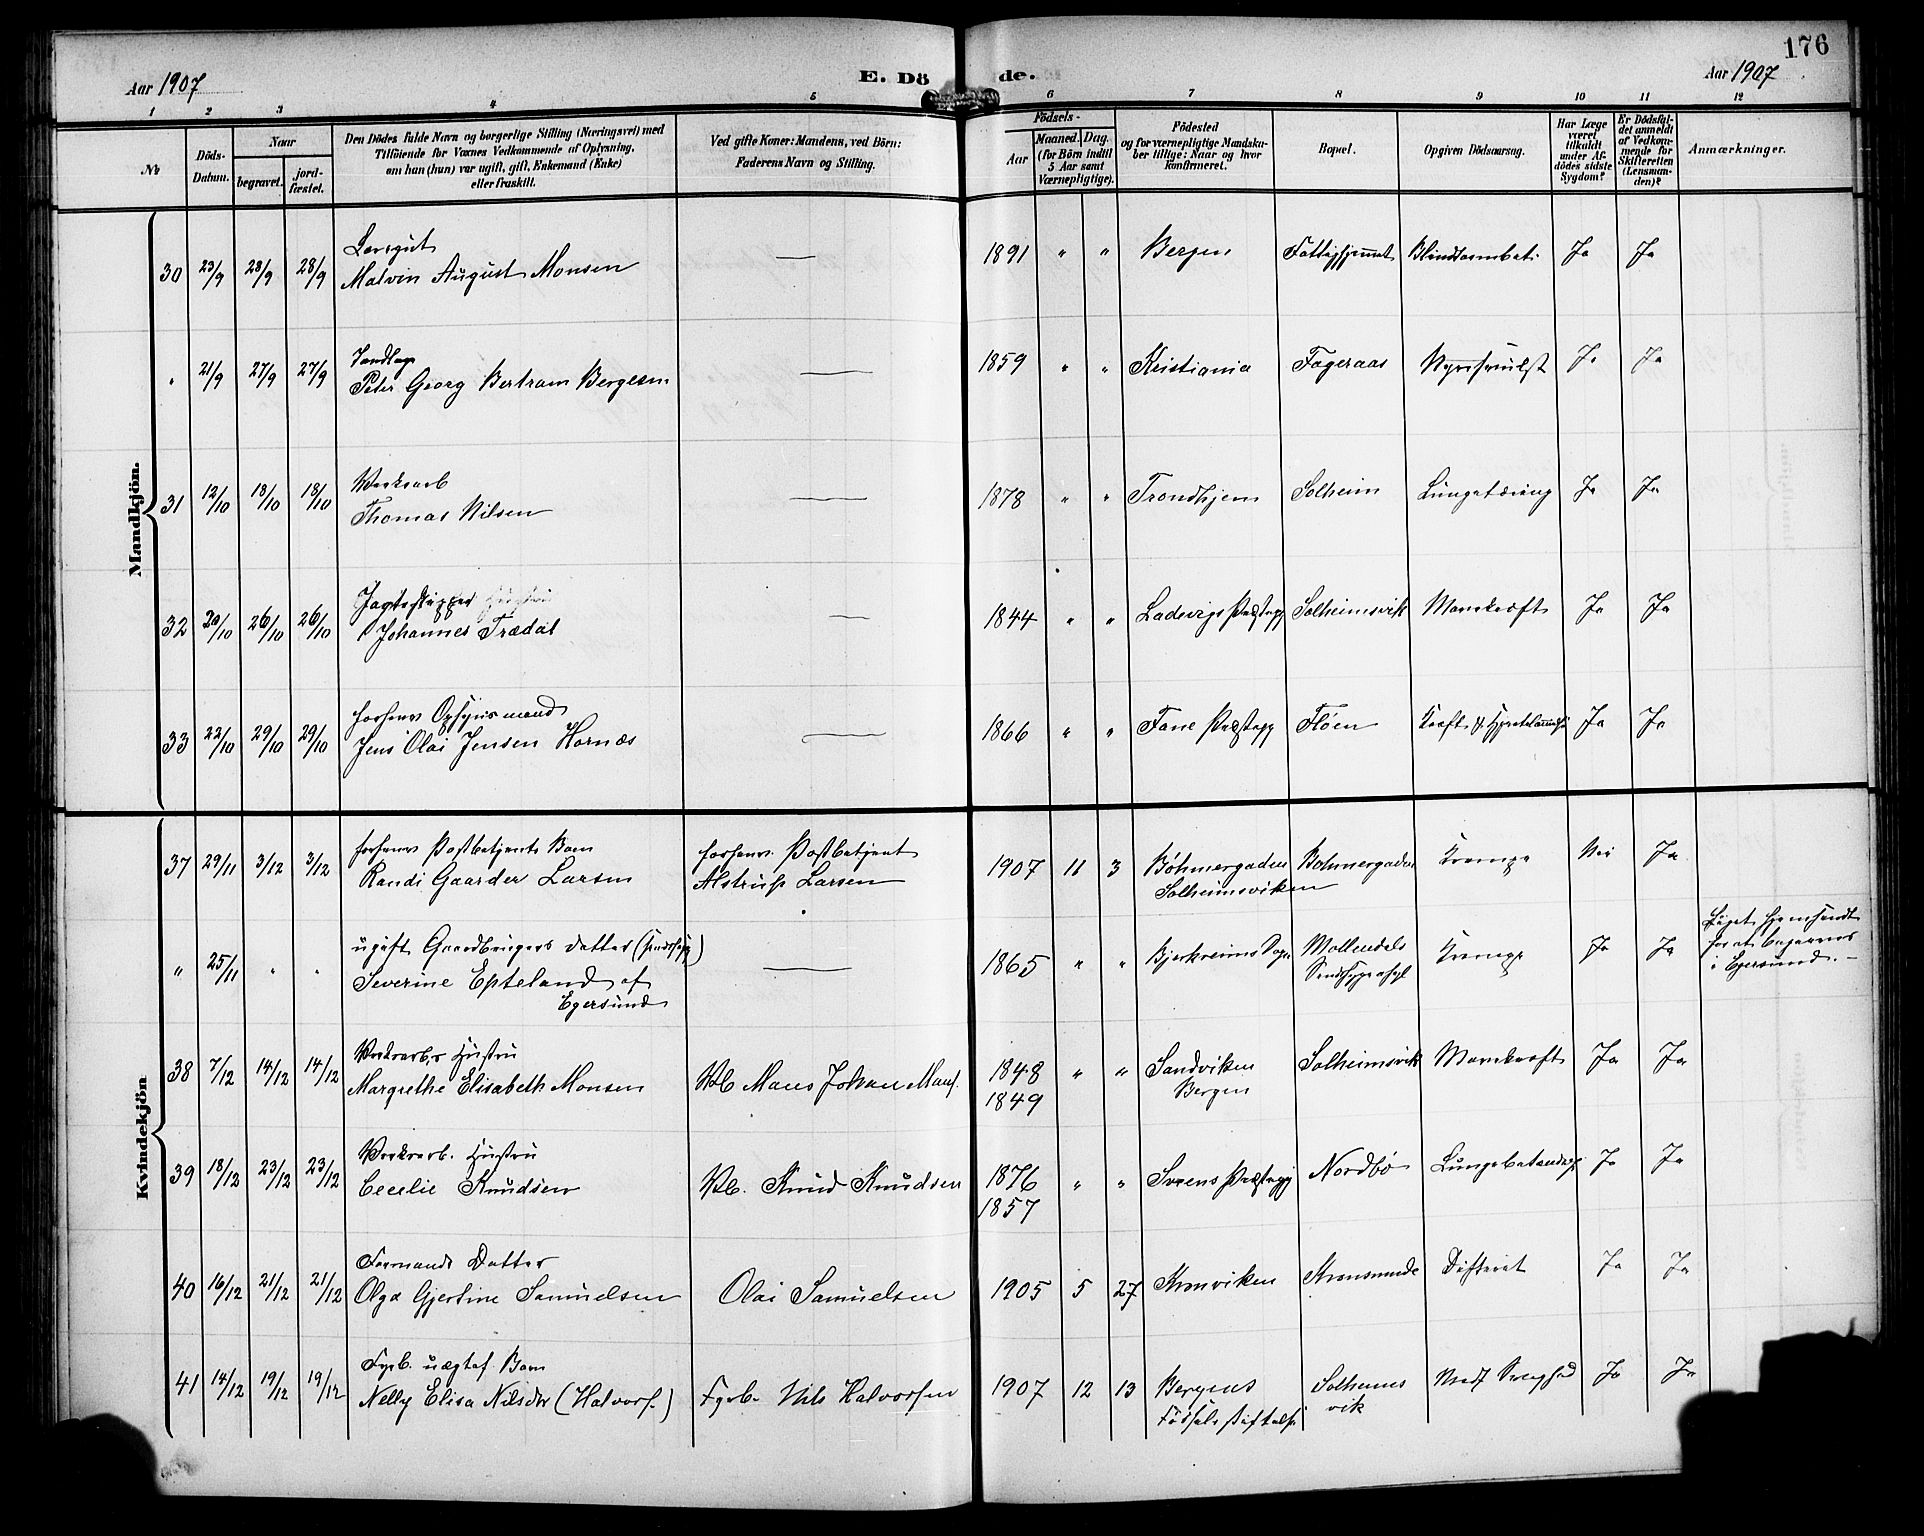 176
Aar 1907
E. Dö de.
Aar 1907
1 2 3 4 5 6 7 8 9 10 11 12
No
Döds-
Datum.
Naar
begravet.
jord-
fæstet.
Den Dödes fulde Navn og borgerlige Stilling (Næringsvei) med
Tilföiende for Voxnes Vedkommende af Oplysning,
om han (hun) var ugift, gift, Enkemand (Enke)
eller fraskilt.
Ved gifte Koner: Mandens, ved Börn:
Faderens Navn og Stilling.
Födsels-
Aar
Maaned. Dag.
(for Börn indtil
5 Aar samt
Værnepligtige).
Födested
og for værnepligtige Mandska-
ber tillige: Naar og hvor
konfirmeret.
Bopæl.
Opgiven Dödsaarsag.
Har Læge
været
tilkaldt
under Af-
dödes sidste
Sygdom?
Er Dödsfal-
det anmeldt
af Vedkom-
mende for
Skifteretten
(Lensman-
den)?
Anmærkninger.
Mandkjön.
30 23/9 28/9 28/9
Malvin August Monsen — 1891 " " Bergen Ja Ja
" 21/9 27/9 27/9
Peter Georg Bertram Bergesen — 1859 " " Kristiania Fageraas Nyresvulst Ja Ja
31 12/10 18/10 18/10 Verksarb
Thomas Nilsen — 1878 " " Trondhjem Solheim Lungetæring Ja Ja
32 20/10 26/10 26/10 Jagteskipper
Johannes Trædal — 1844 " " Ladevigs Præstegj Solheimsvik Mavekræft Ja Ja
33 22/10 29/10 29/10 forhenv Opsynsmand
Jens Olai Jensen Hornæs — 1866 " " Fane Præstegj Fløen Ja Ja
Kvindekjön
37 29/11 3/12 3/12 forhenv Postbetjents Barn
Randi Gaarder Larsen
forhenv. Postbetjent
Alstrup Larsen 1907 11 3 Bøhmergaden
Solheimsviken Bøhmergaden Krampe Nei Ja
" 25/11 " " ugift Gaardbrugers Datter
Severine Epteland af
Egersund — 1865 " " Bjerkreims Sogn Møllendals
Krampe Ja Ja
Liget hjemsendt
for at begraves
i Egersund. —
38 7/12 14/12 14/12 Verksarb.s Hustru
Margrethe Elisabeth Monsen Vb Mons Johan Mons. 1848 " " Sandviken Solheimsvik Mavekræft Ja Ja
1849 Bergen
39 18/12 23/12 23/12 Verksarb. Hustru
Cecelie Knudsen Vb. Knud Knudsen 1876 " " Nordbø Ja Ja
1857
40 16/12 21/12 21/12 Formands Datter
Olga Gjertine Samuelsen Olai Samuelsen 1905 5 27 Kronviken Difterit Ja Ja
41 14/12 19/12 19/12 Fyrb. uægtef. Barn
Nelly Elisa Nilsdtr (Halvors.) Fyrb. Nils Halvorsen 1907 12 13 Bergens
Fødselsstiftelse Solheims
vik Medf Svaghed Ja Ja